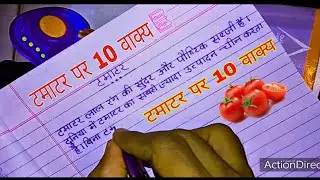 टमाटर पर 10 वाक्य
टमाटर
टमाटर लाल रंग की सुंदर और पौष्टिक सब्जी है।
दुनिया में टमाटर का सबसे ज्यादा उत्पादन चीन करता
है। बिना टम
टमाटर पर 10 वाक्य
ActionDirec